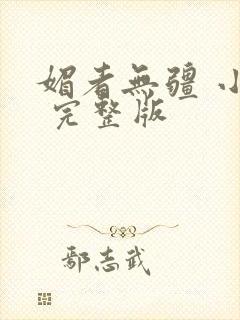 媚者無疆 小
完整版
鄢志武